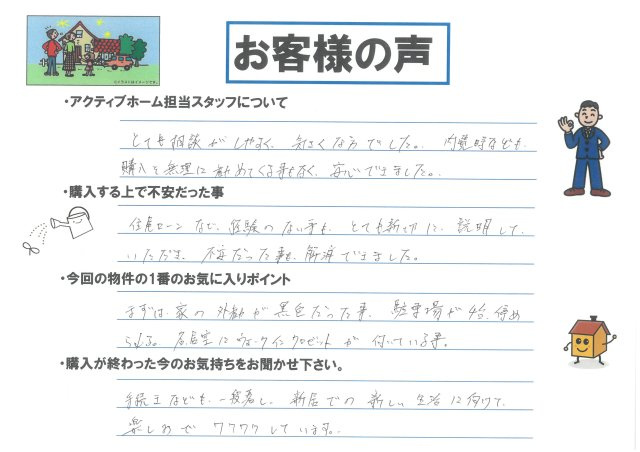 お客様の声
※イラストはイメージです。
・アクティブホーム担当スタッフについて
とても相談がしやすく、気さくな方でした。内覧時なども、
購入を無理に勧めてくる事もなく、安心できました。
・購入する上で不安だった事
住宅ローンなど、経験のない事も、とても親切に、説明して
いただき、不安だった事も、解消できました。
・今回の物件の1番のお気に入りポイント
まずは、家の外観が黒色だった事、駐車場が4台、停め
られる。各居室にウォークインクロゼットが付いている事。
・購入が終わった今のお気持ちをお聞かせ下さい。
手続きなども、一段落し、新居での新しい生活に向けて、
楽しみでワクワクしています。